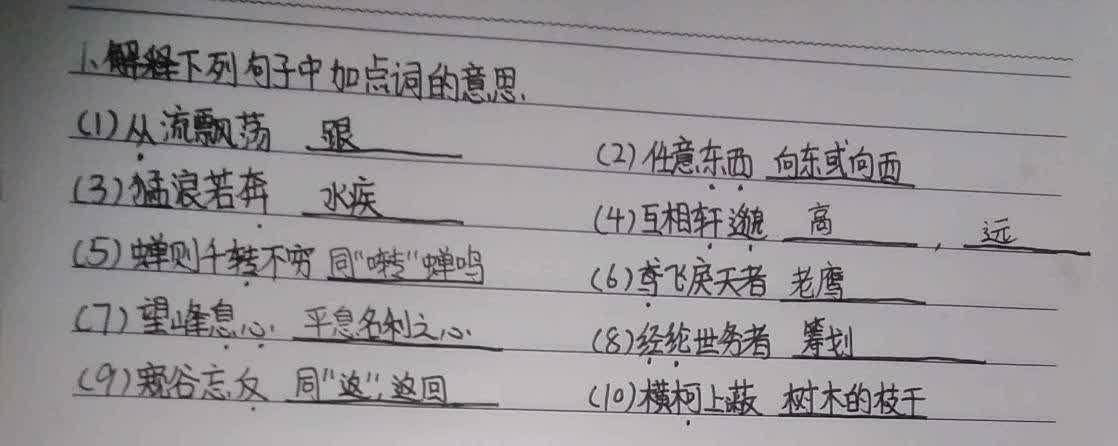 1、解释下列句子中加点词的意思.
(1)从流飘荡 跟 (2)任意东西 向东或向西
(3)猛浪若奔 水疾 (4)互相轩邈 高 , 远
(5)蝉则千转不穷 同"啭"蝉鸣 (6)鸢飞戾天者 老鹰
(7)望峰息心. 平息名利之心. (8)经纶世务者 筹划
(9)窥谷忘反 同"返",返回 (10)横柯上蔽 树木的枝干